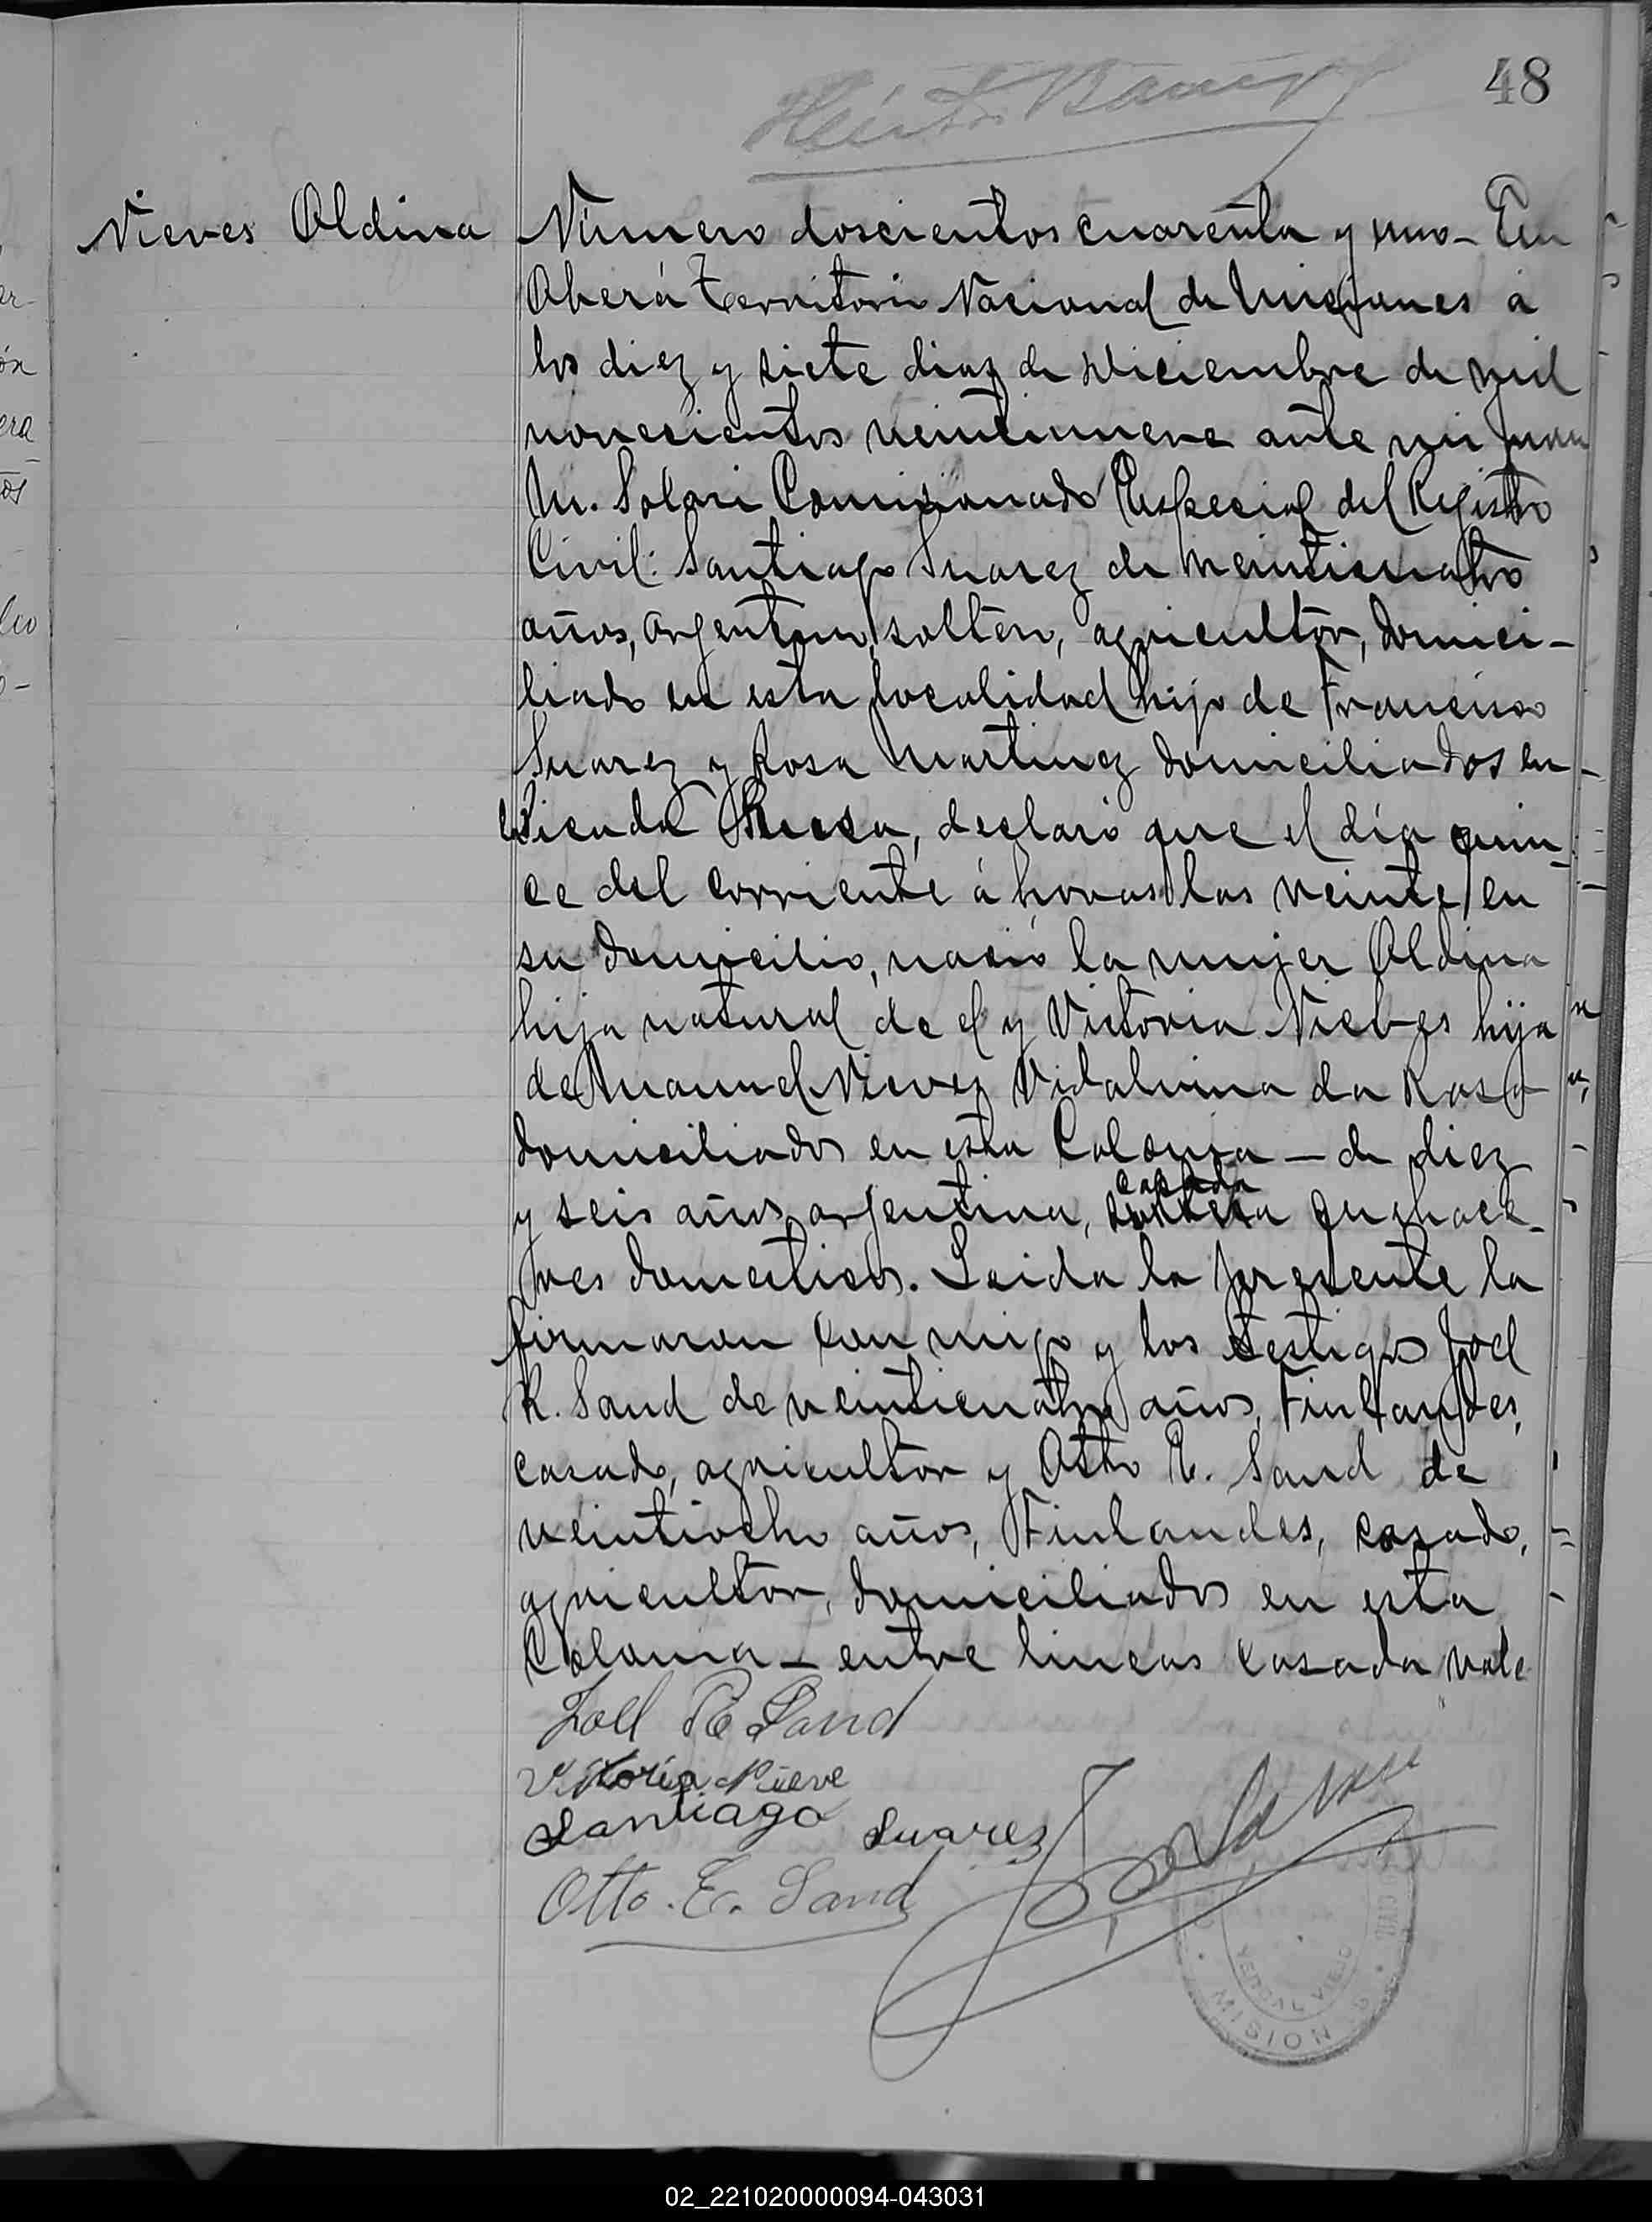 48
Nieves Oldina
Número doscientos cuarenta y uno - En
Oberá Territorio Nacional de Misiones á
los diez y siete dias de Diciembre de mil
novecientos veintinueve ante mi Juan
M. Solari Comisionado Especial del Registro
Civil: Santiago Suarez de veinticuatro
años, argentino, soltero, agricultor, domici-
liado en esta localidad hijo de Francisco
Suarez y Rosa Martinez domiciliados en
Picada Sueca, declaró que el día quin-
ce del corriente á horas las veinte en
su domicilio, nació la mujer Oldina
hija natural de el y Victoria Nieves hija
de Manuel Nievez Vidalvina da Rosa
domiciliados en esta Colonia — de diez
casada
y seis años argentina, soltera quehace-
res domesticos. Leida la presente la
firmaron conmigo y los testigos Joel
R. Sand de veinticuatro años, Finlandes,
casado, agricultor y Otto E. Sand de
veintiocho años, Finlandes, casado,
agricultor, domiciliados en esta
Colonia - entre lineas casada vale
Joel R Sand
Vitoria Nieve
Santiago Suarez
Otto. E. Sand
YERBAL VIEJO
MISIONES
02_221020000094-043031